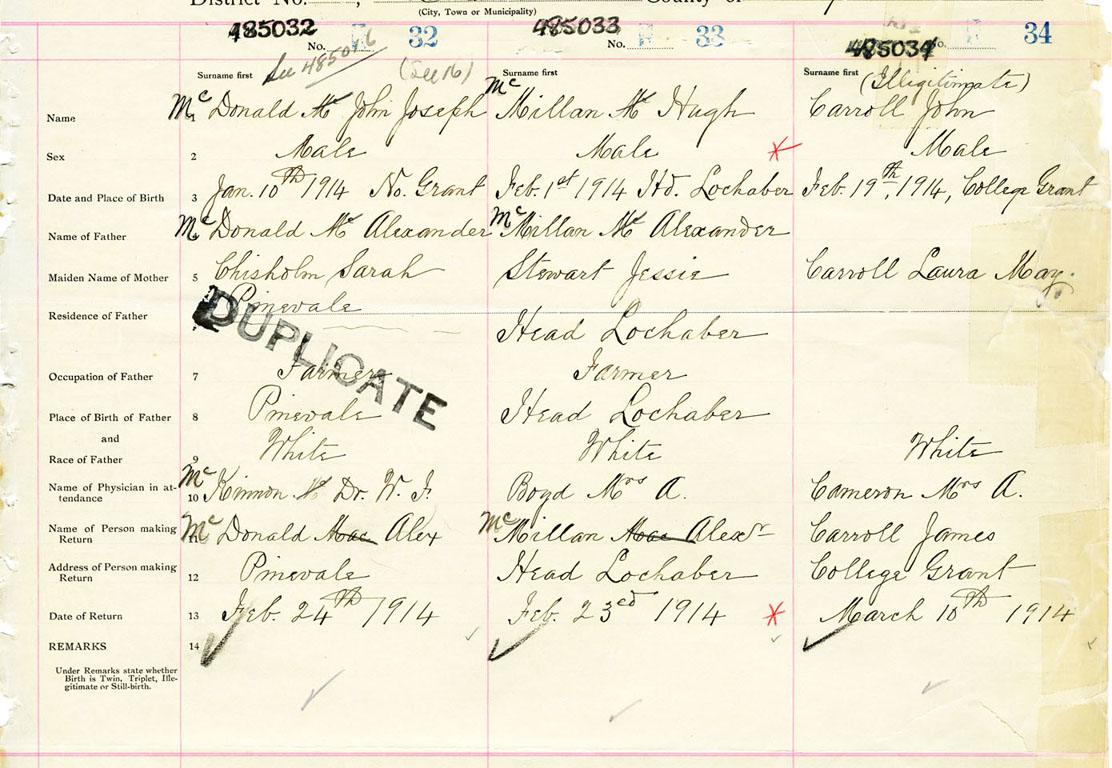 District No.
County of
(City, Town or Municipality)
485032 No. 32
See 485016 (See 16)
Surname first
485033 No. 33
Surname first
485034 No. 34
Surname first
(Illegitimate)
Name 1 McDonald Mc John Joseph McMillan Mc Hugh Carroll John
Sex 2 Male Male Male
Date and Place of Birth 3 Jan. 10th 1914 No. Grant Feb. 1st 1914 Hd. Lochaber Feb. 19th, 1914, College Grant
Name of Father 4 McDonald Mc Alexander McMillan Mc Alexander
Maiden Name of Mother 5 Chisholm Sarah Stewart Jessie Carroll Laura May.
Residence of Father Pinevale Head Lochaber
DUPLICATE
Occupation of Father 7 Farmer Farmer
Place of Birth of Father 8 Pinevale Head Lochaber
and
Race of Father 9 White White White
Name of Physician in at-
tendance 10 McKinnon Mc Dr. W. F. Boyd Mrs A. Cameron Mrs A.
Name of Person making
Return McDonald Mac Alex McMillan Mac Alexr Carroll James
Address of Person making
Return 12 Pinevale Head Lochaber College Grant
Date of Return 13 Feb. 24th 1914 Feb. 23rd 1914 March 10th 1914
REMARKS 14
Under Remarks state whether
Birth is Twin, Triplet, Ille-
gitimate or Still-birth.